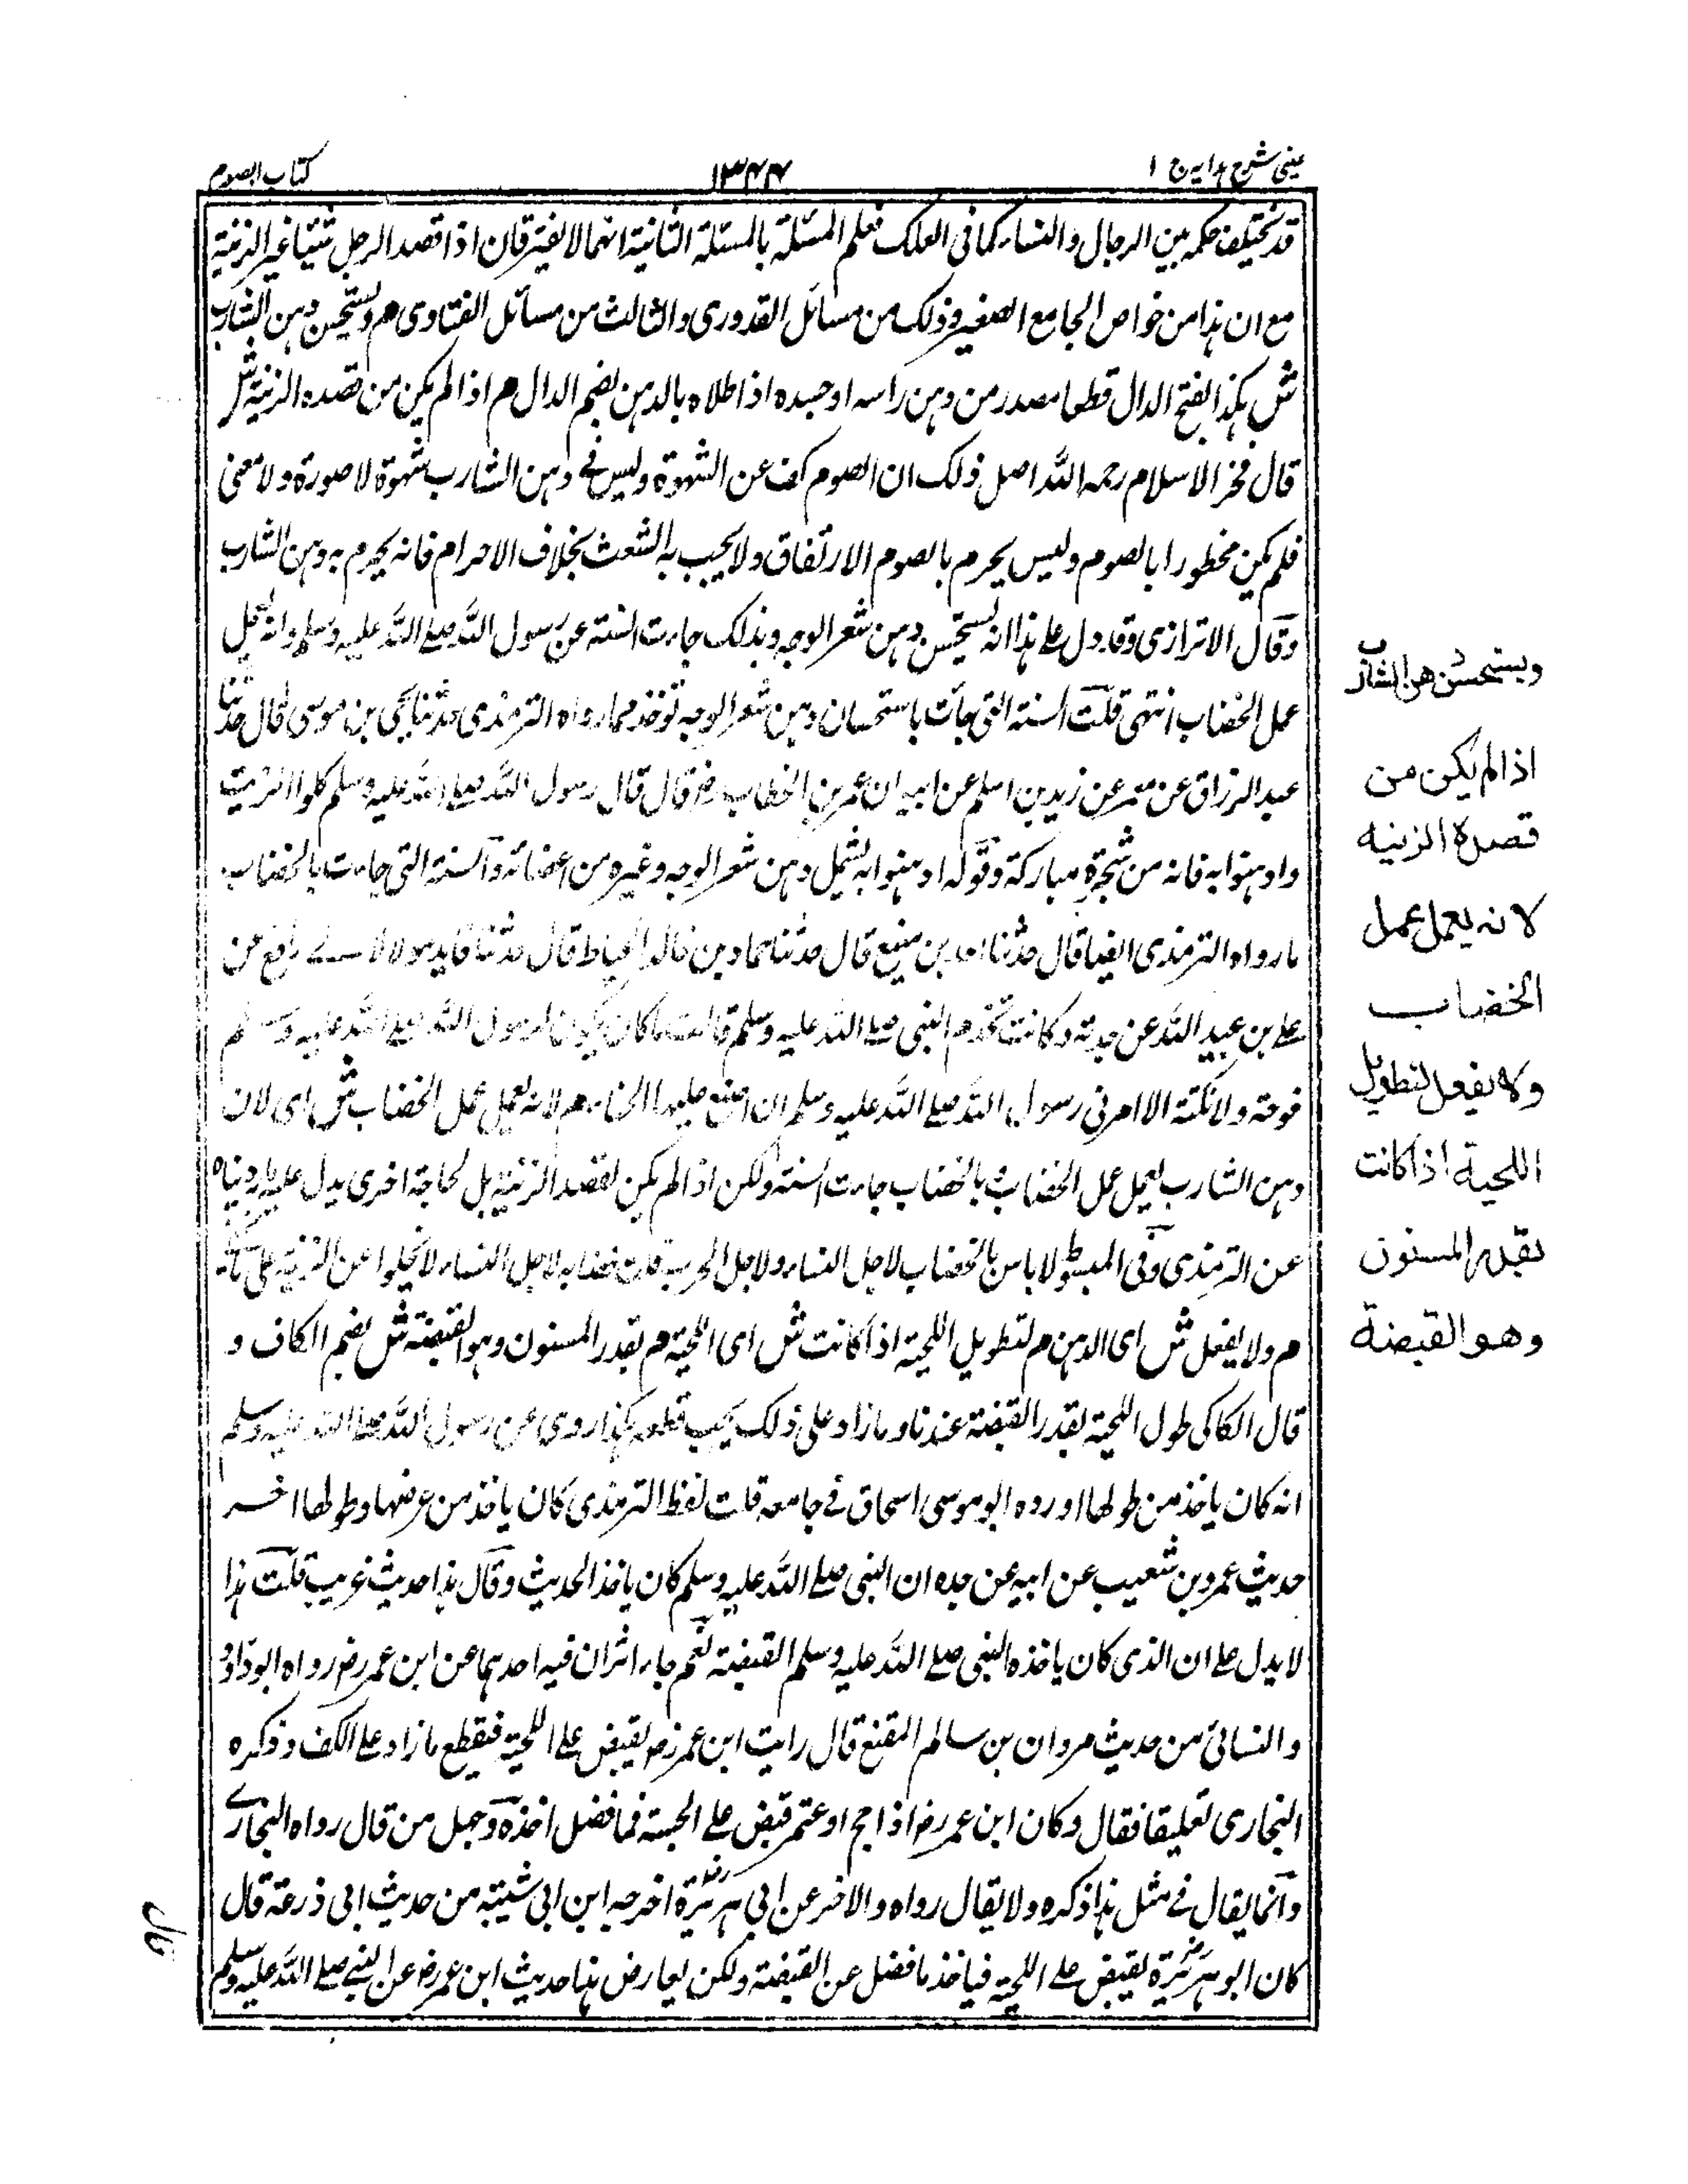 عینی شرح هدایه ج ۱
۱۳۴۴
کتاب الصوم
قد یختلف حکمه بین الرجال والنساء کما فی العلک فعلم المسئلة بالمسئلة الثانیة انهما لا یفترقان اذا قصد الرجل شیئا غیر الزینة
مع ان هذا من خواص الجامع الصغیر وذلک من مسائل القدوری والثالث من مسائل الفتاوی م ویستحسن دهن الشارب
ش هکذا بفتح الدال قطعا مصدر من دهن راسه او جسده اذا طلاه بالدهن بضم الدال م اذا لم یکن من قصده الزینة ش
قال فخر الاسلام رحمه الله اصل ذلک ان الصوم کف عن الشهوة ولیس فی دهن الشارب شهوة لا صورة ولا معنی
فلم یکن محظورا بالصوم ولیس یحرم بالصوم الارتفاق ولا یجب به الشعث بخلاف الاحرام فانه یحرم به دهن الشارب
وقال الاترازی وقد دل علی هذا انه یستحسن دهن شعر الوجه وبذلک جاءت السنة عن رسول الله صلی الله علیه وسلم وانه یعمل
عمل الخضاب انتهی قلت السنة التی جاءت باستحسان دهن شعر الوجه توخذ مما رواه الترمذی حدثنا یحیی بن موسی قال حدثنا
عبد الرزاق عن معمر عن زید بن اسلم عن ابیه ان عمر بن الخطاب رض قال قال رسول الله صلی الله علیه وسلم کلوا الزیت
وادهنوا به فانه من شجرة مبارکة وقوله ادهنوا به یشمل دهن شعر الوجه وغیره من اعضائه والسنة التی جاءت بالخضاب
ما رواه الترمذی ایضا قال حدثنا احمد بن منیع قال حدثنا حماد بن خالد الخیاط قال حدثنا فاید مولی لآل ابی رافع عن
علی بن عبید الله عن جدته وکانت تخدم النبی صلی الله علیه وسلم قالت ما کان یکون لرسول الله صلی الله علیه وسلم
قرحة ولا نکتة الا امرنی رسول الله صلی الله علیه وسلم ان اضع علیها الحناء م لانه یعمل عمل الخضاب ش ای لان
دهن الشارب یعمل عمل الخضاب وبالخضاب جاءت السنة ولکن اذا لم یکن لقصد الزینة بل لحاجة اخری یدل علیه ما رویناه
عن الترمذی وفی المبسوط لا باس بالخضاب لاجل النساء ولاجل الحرب قلت خضابه لاجل النساء لا یخلوا عن الزینة علی
م ولا یفعل ش ای الدهن م لتطویل اللحیة اذا کانت ش ای اللحیة م بقدر المسنون وهو القبضة ش بضم الکاف و
قال الکاکی طول اللحیة بقدر القبضة عندنا وما زاد علی ذلک یجب قطعه هکذا روی عن رسول الله صلی الله علیه وسلم
انه کان یاخذ من طولها اورده ابو موسی اسحاق فی جامعه قلت لفظ الترمذی کان یاخذ من عرضها وطولها اخر
حدیث عمرو بن شعیب عن ابیه عن جده ان النبی صلی الله علیه وسلم کان یاخذ الحدیث وقال هذا حدیث غریب قلت هذا
لا یدل علی ان الذی کان یاخذه النبی صلی الله علیه وسلم القبضة نعم جاء اثران فیه احدهما عن ابن عمر رض رواه ابو داود
والنسائی من حدیث مروان بن سالم المقنع قال رایت ابن عمر رض یقبض علی اللحیة فیقطع ما زاد علی الکف وذکره
البخاری تعلیقا فقال وکان ابن عمر رض اذا حج او عتمر قبض علی الحیته فما فضل اخذه وجهل من قال رواه البخاری
وانما یقال فی مثل هذا ذکره ولا یقال رواه والاخر عن ابی هریرة رض اخرجه ابن ابی شیبة من حدیث ابی ذرعة قال
کان ابو هریرة رض یقبض علی اللحیة فیاخذ ما فضل عن القبضة ولکن یعارض هذا حدیث ابن عمر رض عن النبی صلی الله علیه وسلم
ویستحسن دهن الشارب
اذا لم یکن من
قصده الزینه
لانه یعمل عمل
الخضاب
ولا یفعل لتطویل
اللحیة اذا کانت
بقدر المسنون
وهو القبضة
قال